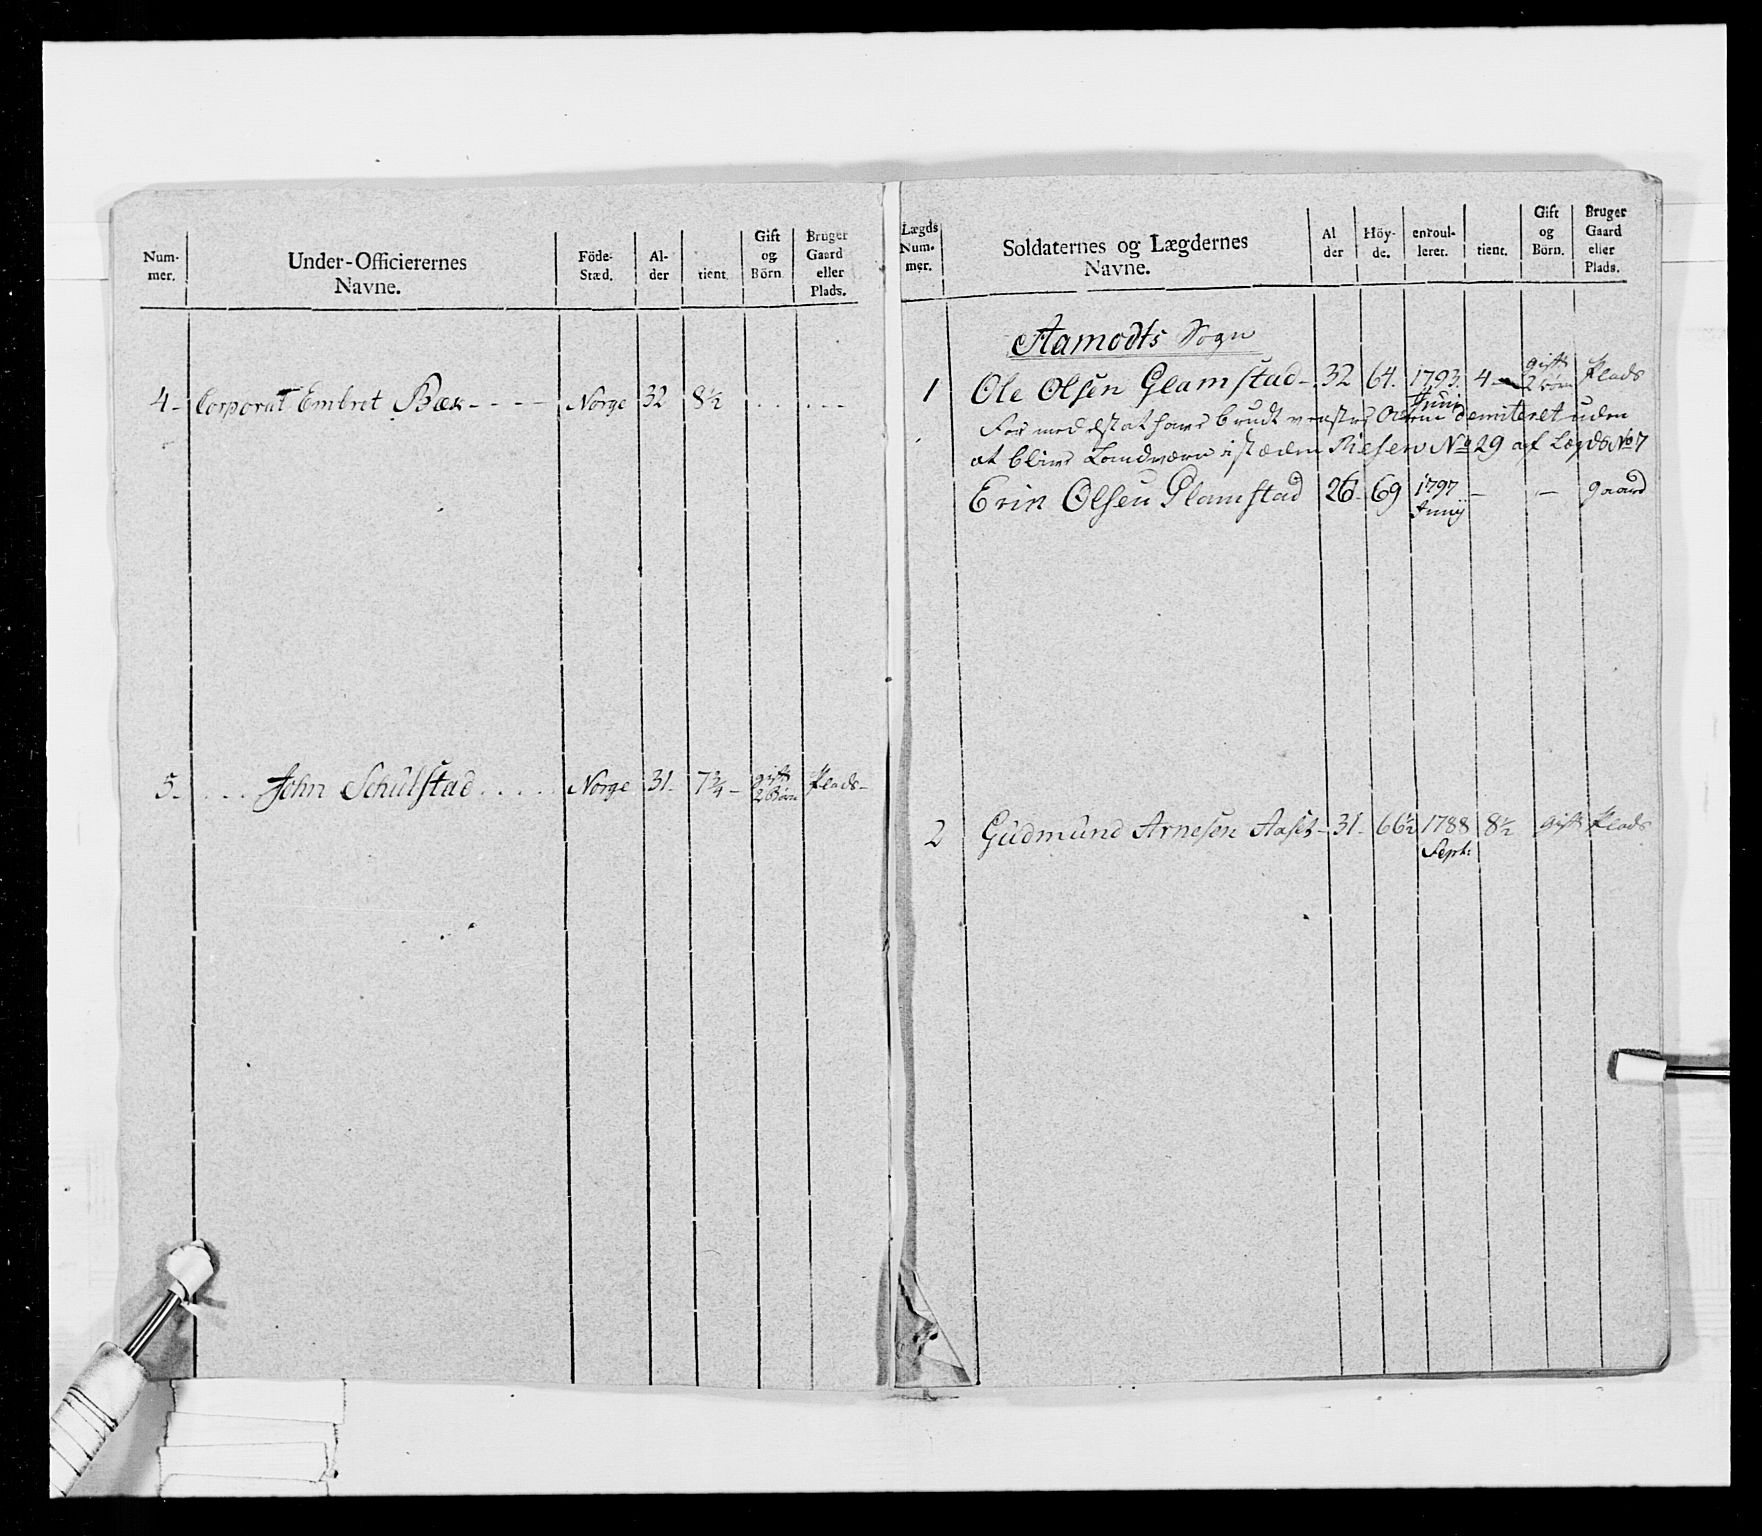 Num-
mer.
Under-Officierernes
Navne.
Föde-
Stæd.
Al-
der
tient.
Gift
og
Börn
Bruger
Gaard
eller
Plads.
4- Corporal Embret Bæk - - - - Norge 32 8½ . . . . - -
5- . . . . John Schulstad . . . . . Norge 31- 7¾- gift
2 Börn Plads-
Lægds
Num-
mer.
Soldaternes og Lægdernes
Navne.
Al
der
Höy-
de.
enroul-
leret.
tient.
Gift
og
Börn.
Bruger
Gaard
eller
Plads.
Aamodts Sogn
1 Ole Olsen Glamstad - 32 64. 1793. 4- gift
2 börn Plads
Junii
For medelst at have brudt venstre demiteret uden
at blive Landværn i stæden Riesen No 29 af Lægd No 7
Erik Olsen Glamstad 26- 69 1797 - - gaard
Junij
2 Gudmund Arnesen Aaset - 31- 66½ 1788 8½ gift Plads
Sept: